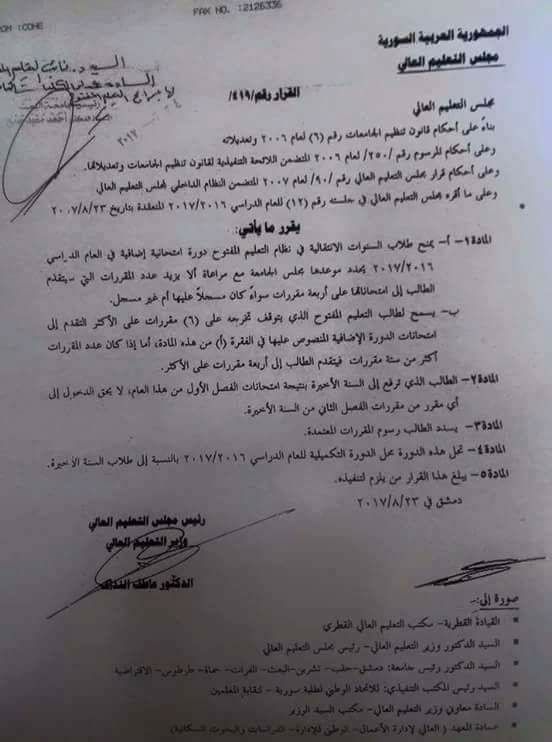 FROM :COHE
FAX NO. :2126336
الجمهورية العربية السورية
مجلس التعليم العالي
القرار رقم /٤١٩/
مجلس التعليم العالي
بناءً على أحكام قانون تنظيم الجامعات رقم (٦) لعام ٢٠٠٦ وتعديلاته
وعلى أحكام المرسوم رقم /٢٥٠/ لعام ٢٠٠٦ المتضمن اللائحة التنفيذية لقانون تنظيم الجامعات وتعديلاتها.
وعلى أحكام قرار مجلس التعليم العالي رقم /٩٠/ لعام ٢٠٠٧ المتضمن النظام الداخلي لمجلس التعليم العالي
وعلى ما أقره مجلس التعليم العالي في جلسته رقم (١٢) للعام الدراسي ٢٠١٧/٢٠١٦ المنعقدة بتاريخ ٢٠١٧/٨/٢٣
يقرر ما يأتي:
المادة١- أ- يمنح طلاب السنوات الانتقالية في نظام التعليم المفتوح دورة امتحانية إضافية في العام الدراسي
٢٠١٧/٢٠١٦ يحدد موعدها مجلس الجامعة مع مراعاة ألا يزيد عدد المقررات التي سيتقدم
الطالب إلى امتحاناتها على أربعة مقررات سواءً كان مسجلاً عليها أم غير مسجل.
ب- يسمح لطالب التعليم المفتوح الذي يتوقف تخرجه على (٦) مقررات على الأكثر التقدم إلى
امتحانات الدورة الإضافية المنصوص عليها في الفقرة (أ) من هذه المادة، أما إذا كان عدد المقررات
أكثر من ستة مقررات فيتقدم الطالب إلى أربعة مقررات على الأكثر.
المادة٢- الطالب الذي ترفع إلى السنة الأخيرة بنتيجة امتحانات الفصل الأول من هذا العام، لا يحق الدخول إلى
أي مقرر من مقررات الفصل الثاني من السنة الأخيرة.
المادة٣- يسدد الطالب رسوم المقررات المعتمدة.
المادة٤- تحل هذه الدورة محل الدورة التكميلية للعام الدراسي ٢٠١٧/٢٠١٦ بالنسبة إلى طلاب السنة الأخيرة.
المادة٥- يبلغ هذا القرار من يلزم لتنفيذه.
دمشق في ٢٠١٧/٨/٢٣
رئيس مجلس التعليم العالي
وزير التعليم العالي
الدكتور عاطف النداف
صورة إلى:-
القيادة القطرية- مكتب التعليم العالي القطري
السيد الدكتور وزير التعليم العالي- رئيس مجلس التعليم العالي
السيد الدكتور رئيس جامعة: دمشق-حلب- تشرين-البعث- الفرات- حماة- طرطوس- الافتراضية
السيد رئيس المكتب التنفيذي: للاتحاد الوطني لطلبة سورية - لنقابة المعلمين
السادة معاوني وزير التعليم العالي- مكتب السيد الوزير
السادة المعهد ( العالي لإدارة الأعمال- الوطني للإدارة- الدراسات والبحوث السكانية)